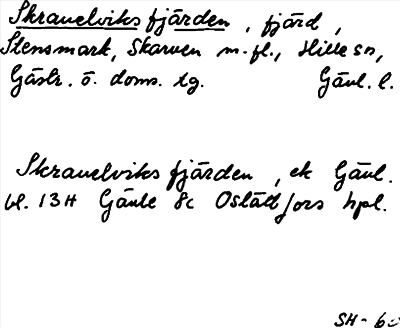 Skravelviksfjärden, fjärd,
Stensmark, Skarven m.fl., Hille sn,
Gästr. ö. doms. tg. Gävl. l.
Skravelviksfjärden, ek Gävl.
bl. 13H Gävle 8c Oslättfors hpl.
SH-